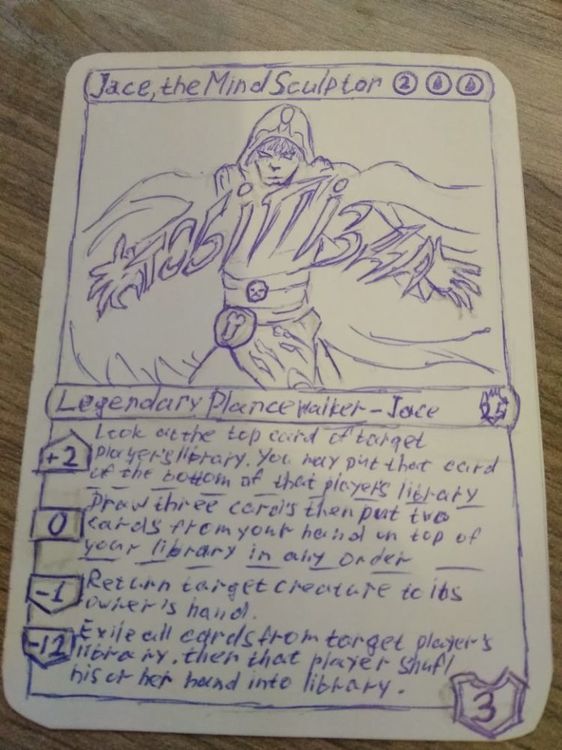 Jace, the Mind Sculptor 2
Legendary Plancewalker - Jace
25
+2
Look at the top card of target
player's library. You may put that card
of the bottom of that player's library
0
Draw three cards then put two
cards from your hand on top of
your library in any order
-1
Return target creature to its
owner's hand.
-12
Exile all cards from target player's
library. then that player shufl
his or her hand into library.
3